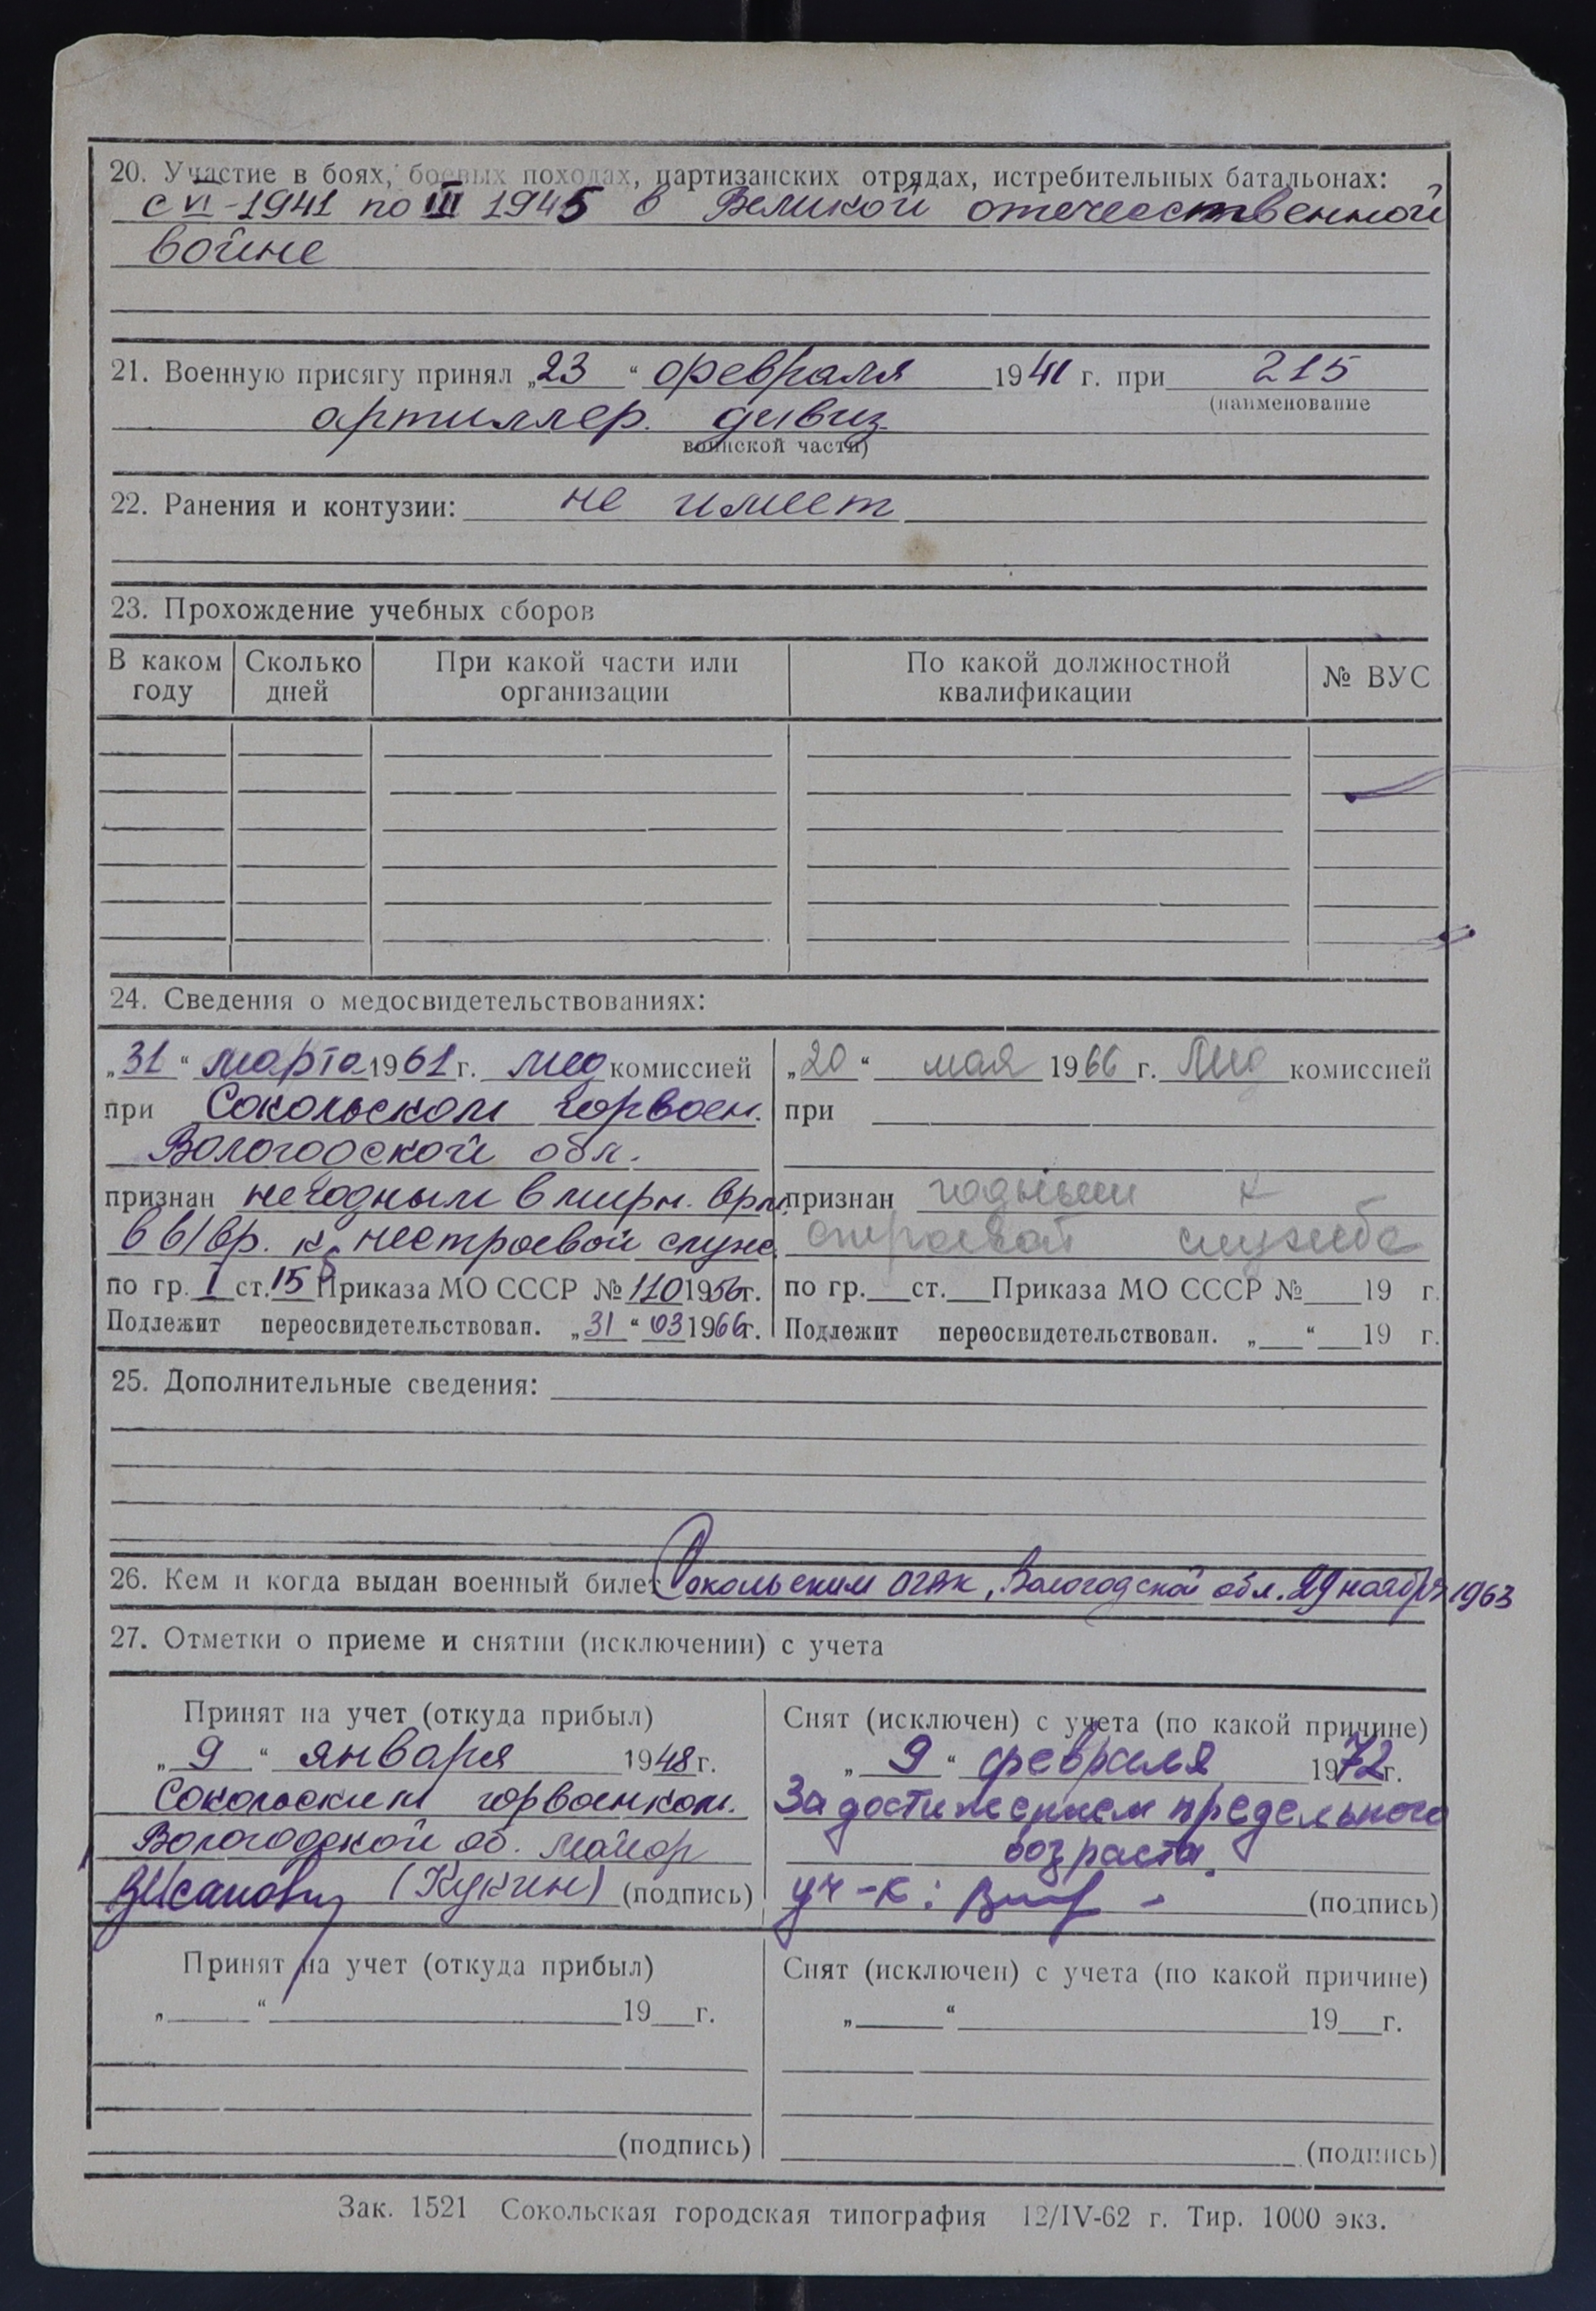 20. Участие в боях, боевых походах, партизанских отрядах, истребительных батальонах:
с VI-1941 по III 1945 в Великой отечественной
войне
21. Военную присягу принял „23“ февраля 1941 г. при 215
(наименование
артиллер. дивиз
воинской части)
22. Ранения и контузии: не имеет
23. Прохождение учебных сборов
В каком году Сколько дней При какой части или организации По какой должностной квалификации № ВУС
24. Сведения о медосвидетельствованиях:
„31“ марта 1961 г. мед комиссией
при Сокольском горвоен.
Вологодской обл.
признан негодным в мирн. врм.
в в/вр. к нестроевой служ.
по гр. I ст. 15 Приказа МО СССР № 110 1956г.
Подлежит переосвидетельствован. „31“ 03 1966г.
„20“ мая 1966 г. Мед комиссией
при
признан годным к
строевой службе
по гр. ст. Приказа МО СССР № 19 г.
Подлежит переосвидетельствован. „ “ 19 г.
25. Дополнительные сведения:
26. Кем и когда выдан военный билет Сокольским ОГВК, Вологодской обл. 29 ноября 1963
27. Отметки о приеме и снятии (исключении) с учета
Принят на учет (откуда прибыл)
„9“ января 1948 г.
Сокольским горвоенком.
Вологодской об. майор
(Кукин) (подпись)
Снят (исключен) с учета (по какой причине)
„9“ февраля 1972 г.
За достижением предельного
возраста.
уч-к: (подпись)
Принят на учет (откуда прибыл)
„ “ 19 г.
(подпись)
Снят (исключен) с учета (по какой причине)
„ “ 19 г.
(подпись)
Зак. 1521 Сокольская городская типография 12/IV-62 г. Тир. 1000 экз.